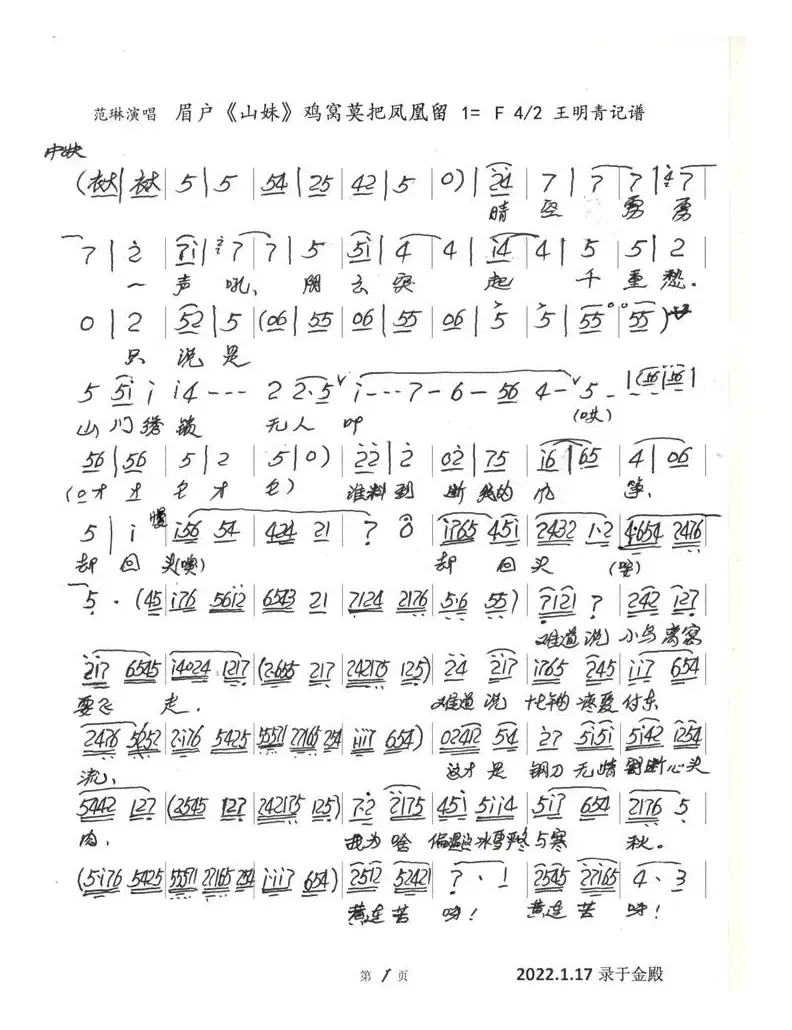 范琳演唱 眉户《山妹》鸡窝莫把凤凰留 1= F 4/2 王明青记谱
中快
5 | 5 | 54 | 25 | 42 | 5 | 0) | 24 | 7 | 7 | 7 | 7
晴空
7 | 2 | 7i | 7 | 7 | 5 | 5i | 4 | 4 | i4 | 4 | 5 | 5 | 2
一声吼、阴云突起千重愁.
0 | 2 | 52 | 5 | (06 | 55 | 06 | 55 | 06 | 5 | 5 | 55 | 55)
只说是
5 5i i i4 --- 2 2·5 i---7-6-56 4- 5-
山门 锁 无人叩 (哎)
56 | 56 | 5 | 2 | 5 | 0) | 22 | 2 | 02 | 75 | i6 | 65 | 4 | 06
谁料到断我的风筝.
5 | i 慢 i56 54 | 424 21 | 7 0 | i765 45i | 2432 1·2 | 4·654 2476
却回头(噢) 却回头
5 · (45 | i76 56i2 | 6543 21 | 7124 2176 | 5·6 55) | 7i2i 7 | 242 127
难道说小鸟离窝
2i7 6545 | i4024 1217 | (2·685 217 | 242175 125) | 24 2i7 | i765 245 | ii7 654
要飞走. 难道说 疼爱付东
2476 5652 | 2·i76 5425 | 55571 77165 254 | iii7 654) | 02412 54 | 27 5i5i | 5i42 1254
流、 这才是钢刀无情割断心头
5442 127 | (2545 127 | 242175 125) | 72 2175 | 45i 5ii4 | 5i7 654 | 2176 5
肉. 我为啥偏遇上冰雪严冬与寒秋.
(5i76 5425 | 55571 27165 254 | iii7 654) | 2512 52421 | 7 · 1 | 2545 27165 | 4 · 3
黄连苦呀! 黄连苦呀!
第 1 页 2022.1.17 录于金殿